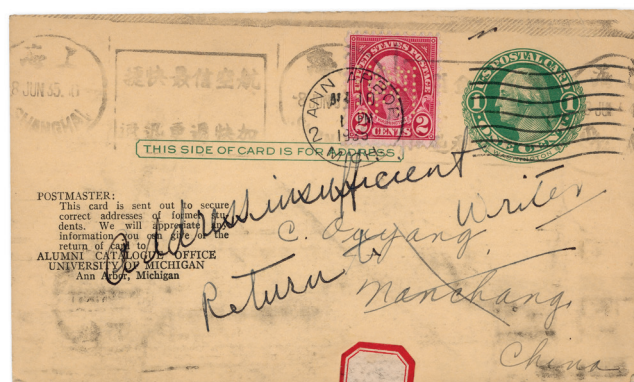 上海
8 JUN 35
SHANGHAI
航空信最快捷
UNITED STATES POSTAGE
2 CENTS 2
U.S. POSTAL CARD
1 1
ANN ARBOR
MICH.
THIS SIDE OF CARD IS FOR ADDRESS
POSTMASTER:
This card is sent out to secure
correct addresses of former stu-
dents. We will appreciate any
information you can give on the
return of card to
ALUMNI CATALOGUE OFFICE
UNIVERSITY OF MICHIGAN
Ann Arbor, Michigan
Address insufficient
Return Writer
C. Ouyang
Nanchang,
China